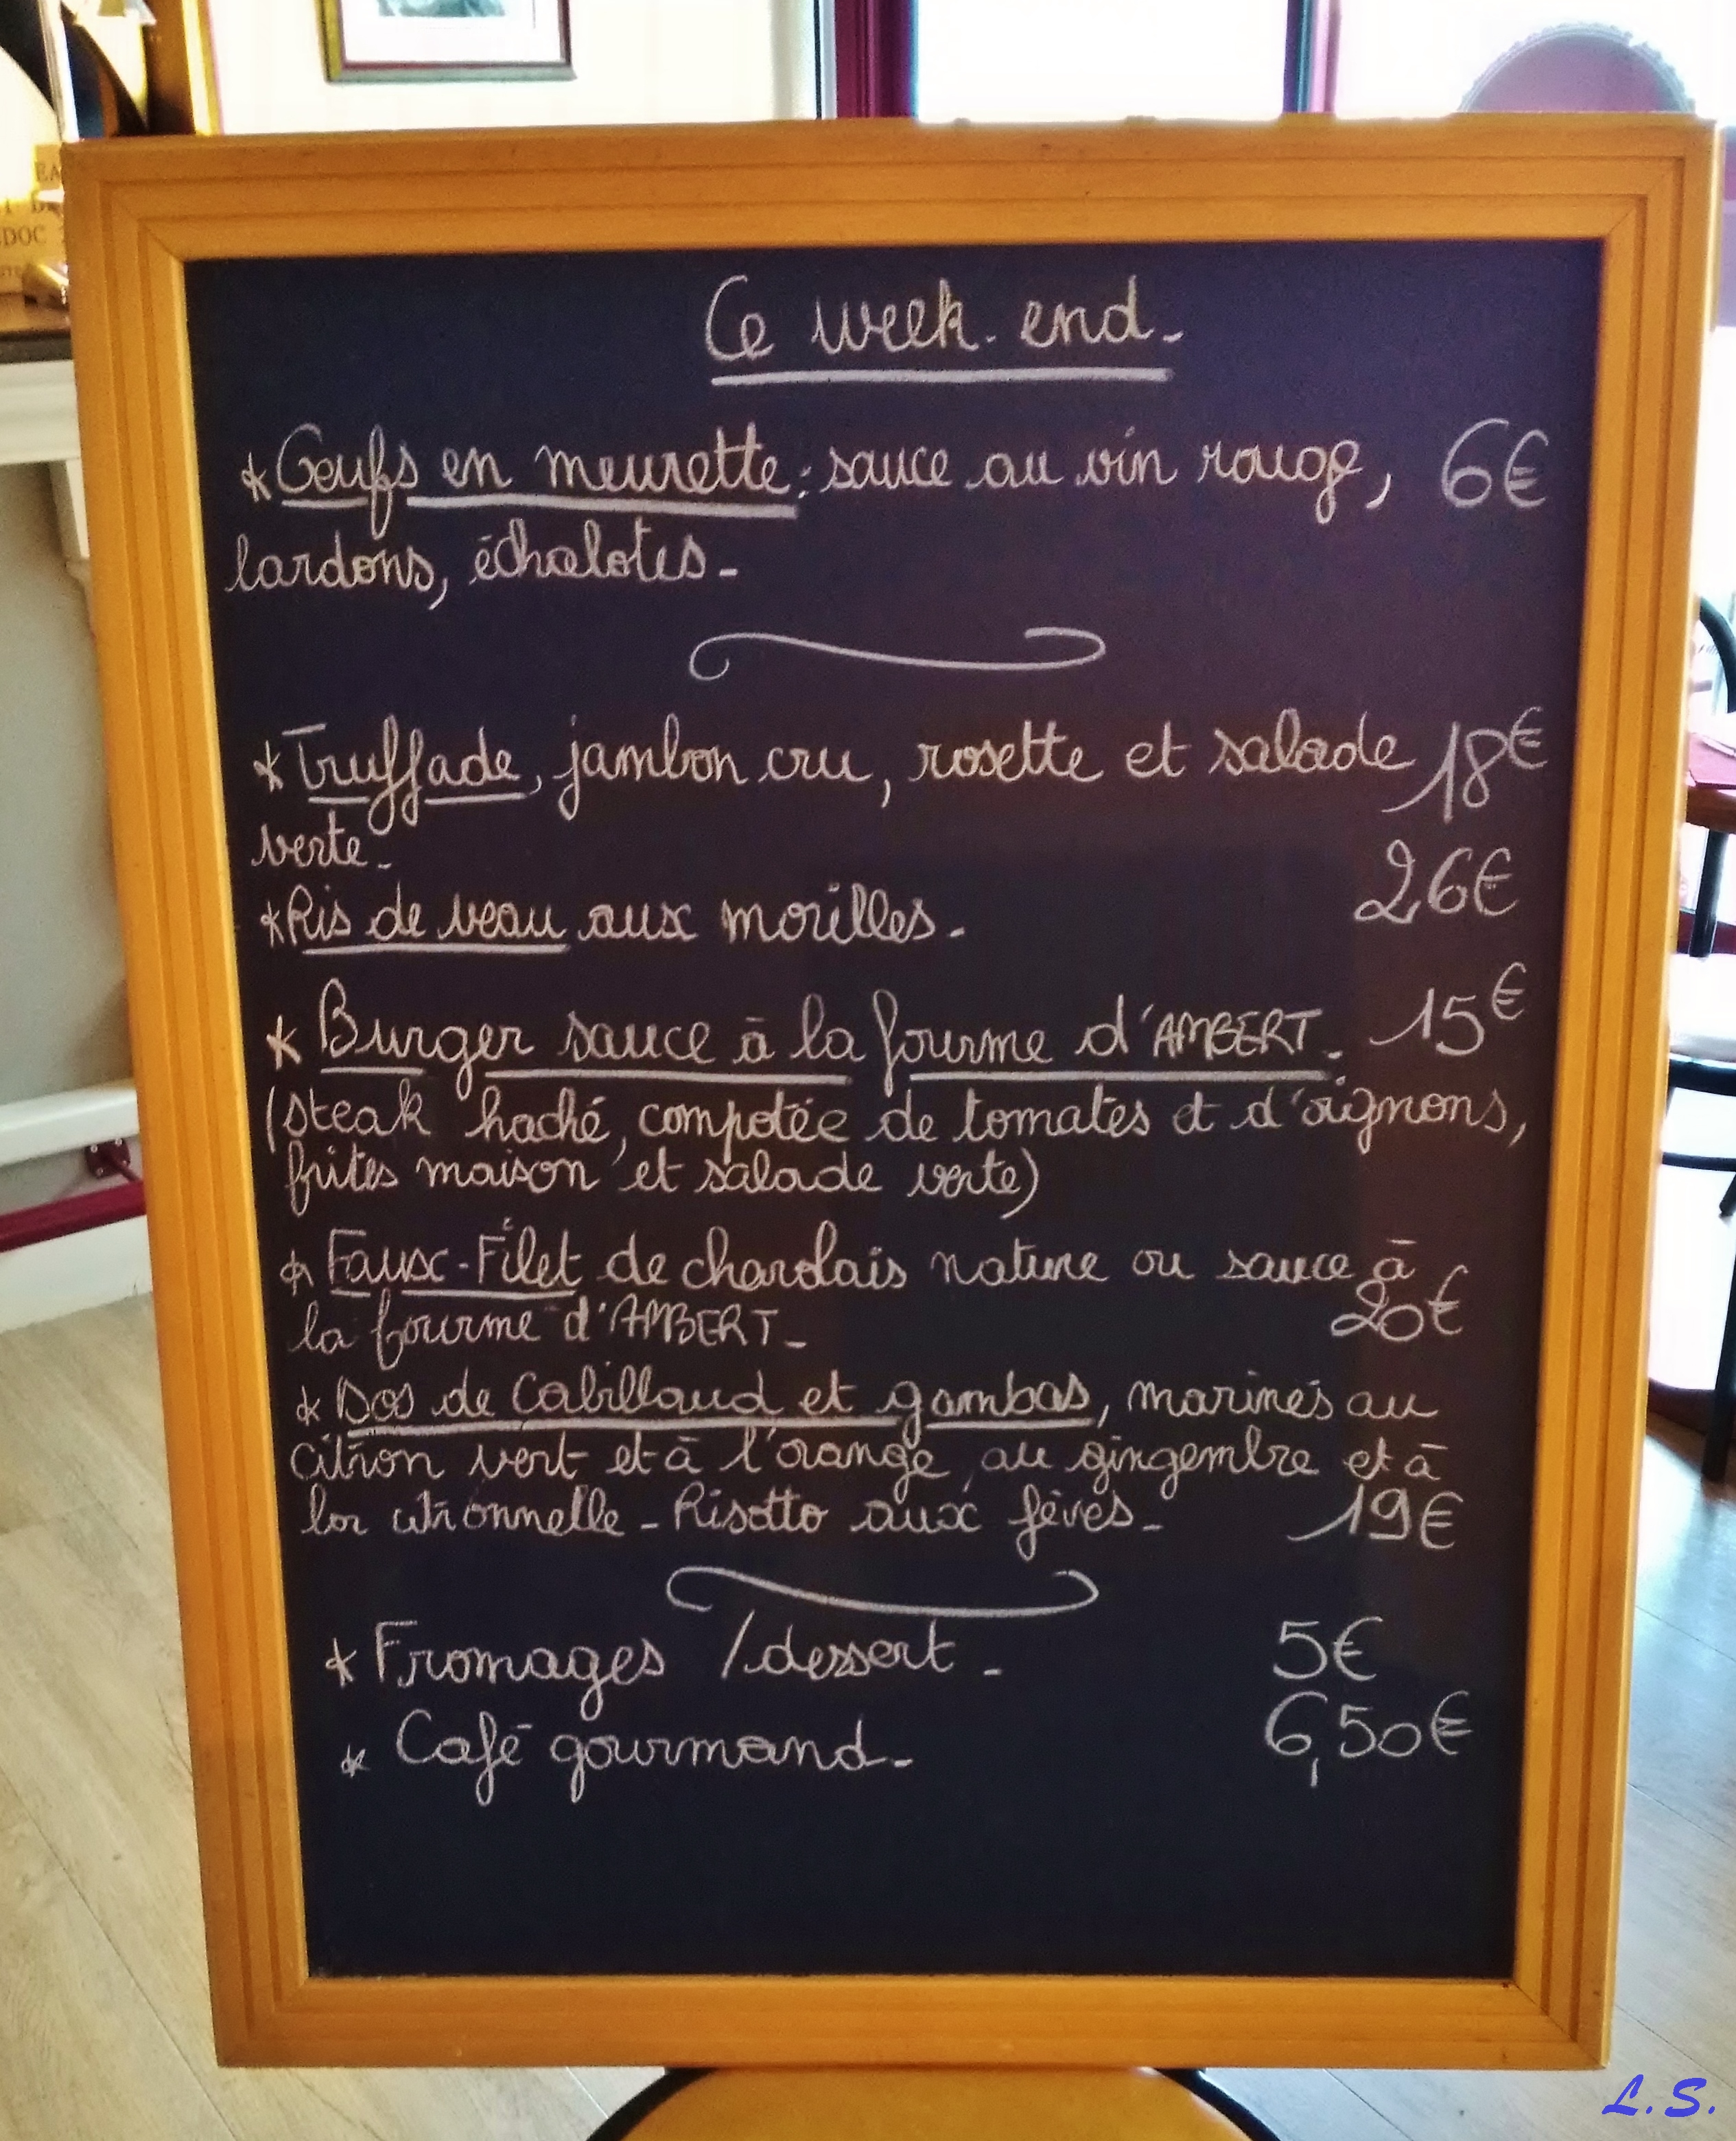 Ce week-end-
*Oeufs en meurette: sauce au vin rouge, 6€
lardons, échalotes-
*Truffade, jambon cru, rosette et salade 18€
verte-
*Ris de veau aux morilles- 26€
* Burger sauce à la fourme d'AMBERT- 15€
(steak haché, compotée de tomates et d'oignons,
frites maison et salade verte)
* Faux-Filet de charolais nature ou sauce à
la fourme d'AMBERT- 20€
* Dos de cabillaud et gambas, marinés au
citron vert et à l'orange, au gingembre et à
la citronnelle - Risotto aux fèves- 19€
* Fromages /dessert- 5€
* Café gourmand- 6,50€
L.S.